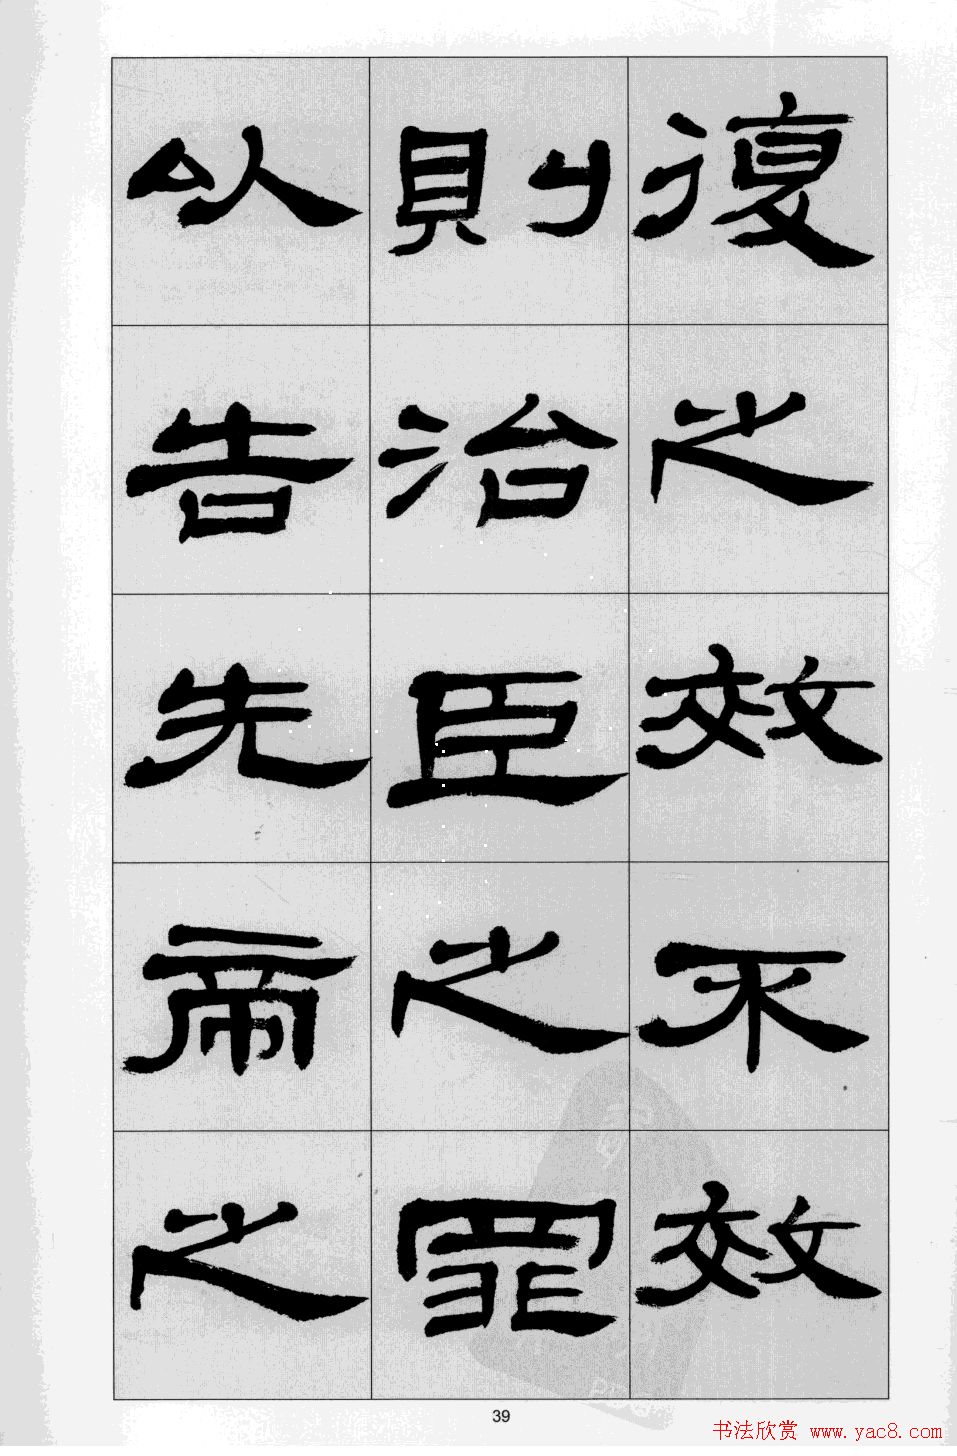 復之效不效
則治臣之罪
以告先帝之
39
书法欣赏 www.yac8.com